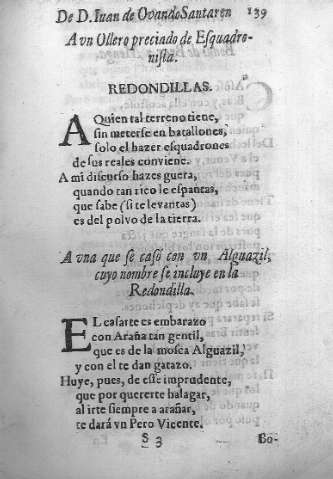 De D. Iuan de Ovando Santaren 139
A vn Ollero preciado de Esquadro-
nista.
REDONDILLAS.
A Quien tal terreno tiene,
sin meterse en batallones,
solo el hazer esquadrones
de sus reales conviene.
A mi discurso hazes guera,
quando tan rico le espantas,
que sabe (si te levantas)
es del polvo de la tierra.
A vna que se casò con vn Alguazil,
cuyo nombre se incluye en la
Redondilla.
EL casarte es embarazo
con Araña tan gentil,
que es de la mosca Alguazil,
y con el te dan gatazo.
Huye, pues, de esse imprudente,
que por quererte halagar,
al irte siempre a arañar,
te darà vn Pero Vicente.
S 3 Bo-